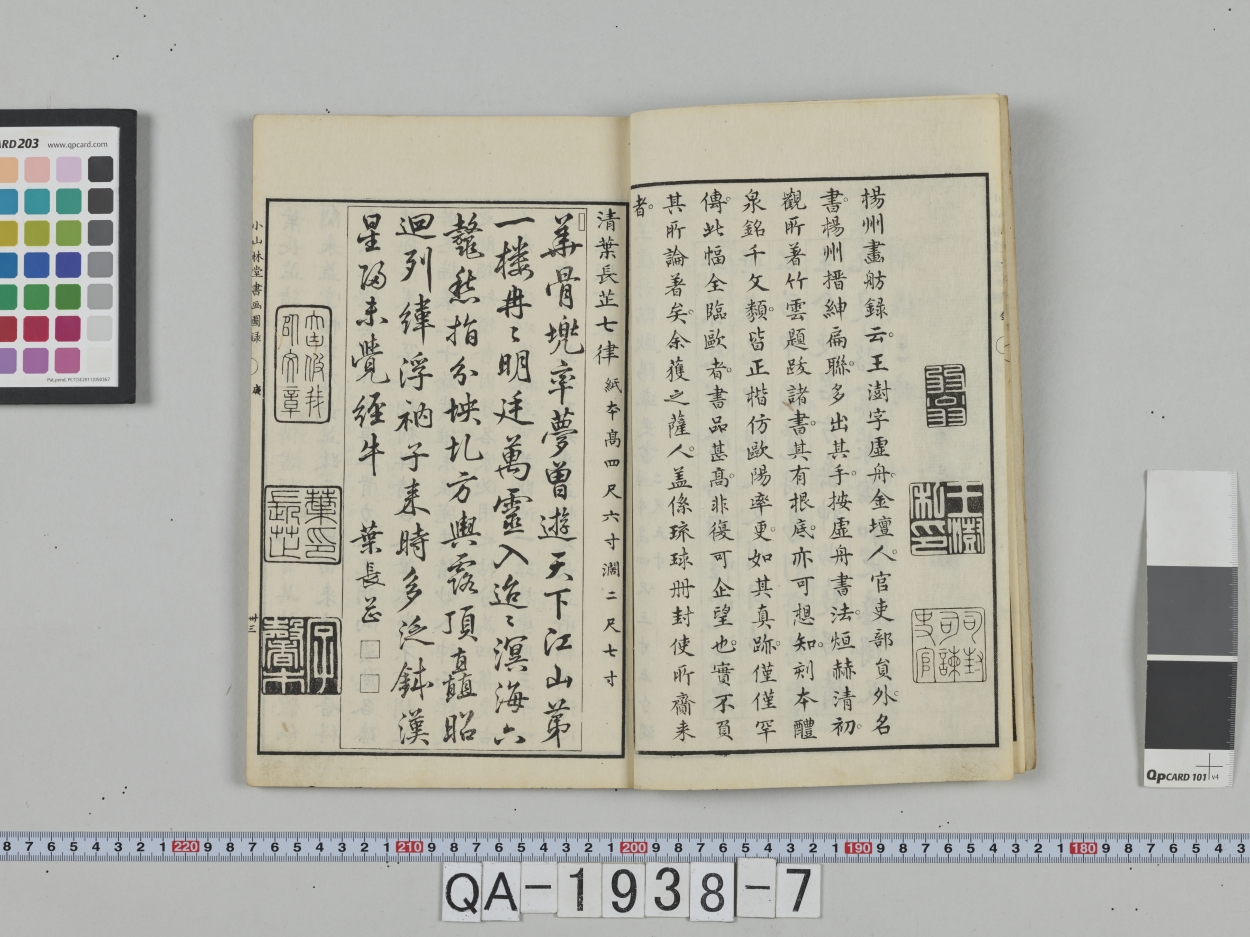 揚州畫舫録云。王澍字虚舟。金壇人。官吏部員外。名
書。揚州搢紳扁聯。多出其手。按虚舟書法。烜赫清初。
觀所著竹雲題跋諸書。其有根底。亦可想知。刻本醴
泉銘千文類。皆正楷仿歐陽率更。如其真跡。僅僅罕
傳。此幅全臨歐者。書品甚高。非復可企望也。實不負
其所論著矣。余獲之薩人。盖係琉球册封使所齋来
者。
清葉長芷七律 紙本高四尺六寸濶二尺七寸
華骨 率夢曽遊天下江山第
一楼冉〻明廷萬靈入迢〻溟海六
鼇愁指分坱圠方輿露頂直藉昭
迴列緯浮衲子来時多泛鉢漢
星歸未覺經牛 葉長芷
王澍私印
司封司諫史官
葉長芷印
小山林堂書画圖録
庚
卅三
CARD 203
www.qpcard.com
QpCARD 101 v4
8 7 6 5 4 3 2 1 220 9 8 7 6 5 4 3 2 1 210 9 8 7 6 5 4 3 2 1 200 9 8 7 6 5 4 3 2 1 190 9 8 7 6 5 4 3 2 1 180 9 8 7 6 5 4 3
QA-1938-7